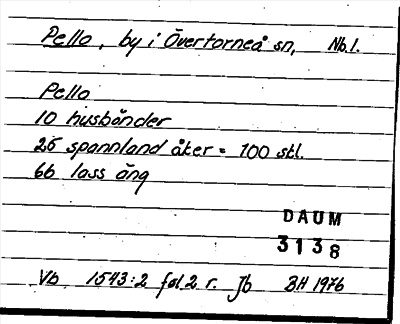 Pello, by i Övertorneå sn, Nb.l.
Pello
10 husbönder
25 spannland åker = 100 skl.
66 lass äng
DAUM
3138
Vb 1543:2 fol. 2 r. Jb BH 1976